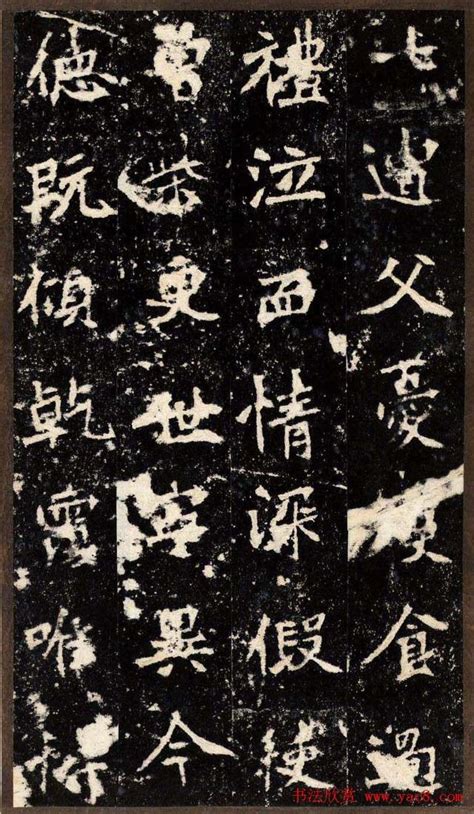 七遭父憂寑食過
禮泣血情深假使
曾柴更世寧異今
德既傾乾覆唯恃
书法欣赏 www.yac8.com